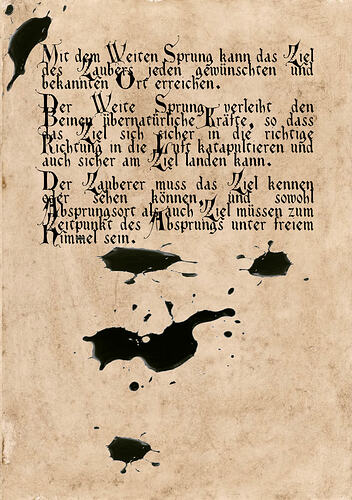 Mit dem Weiten Sprung kann das Ziel
des Zaubers jeden gewünschten und
bekannten Ort erreichen.
Der Weite Sprung verleiht den
Beinen übernatürliche Kräfte, so dass
das Ziel sich sicher in die richtige
Richtung in die Luft katapultieren und
auch sicher am Ziel landen kann.
Der Zauberer muss das Ziel kennen
oder sehen können, und sowohl
Absprungsort als auch Ziel müssen zum
Zeitpunkt des Absprungs unter freiem
Himmel sein.